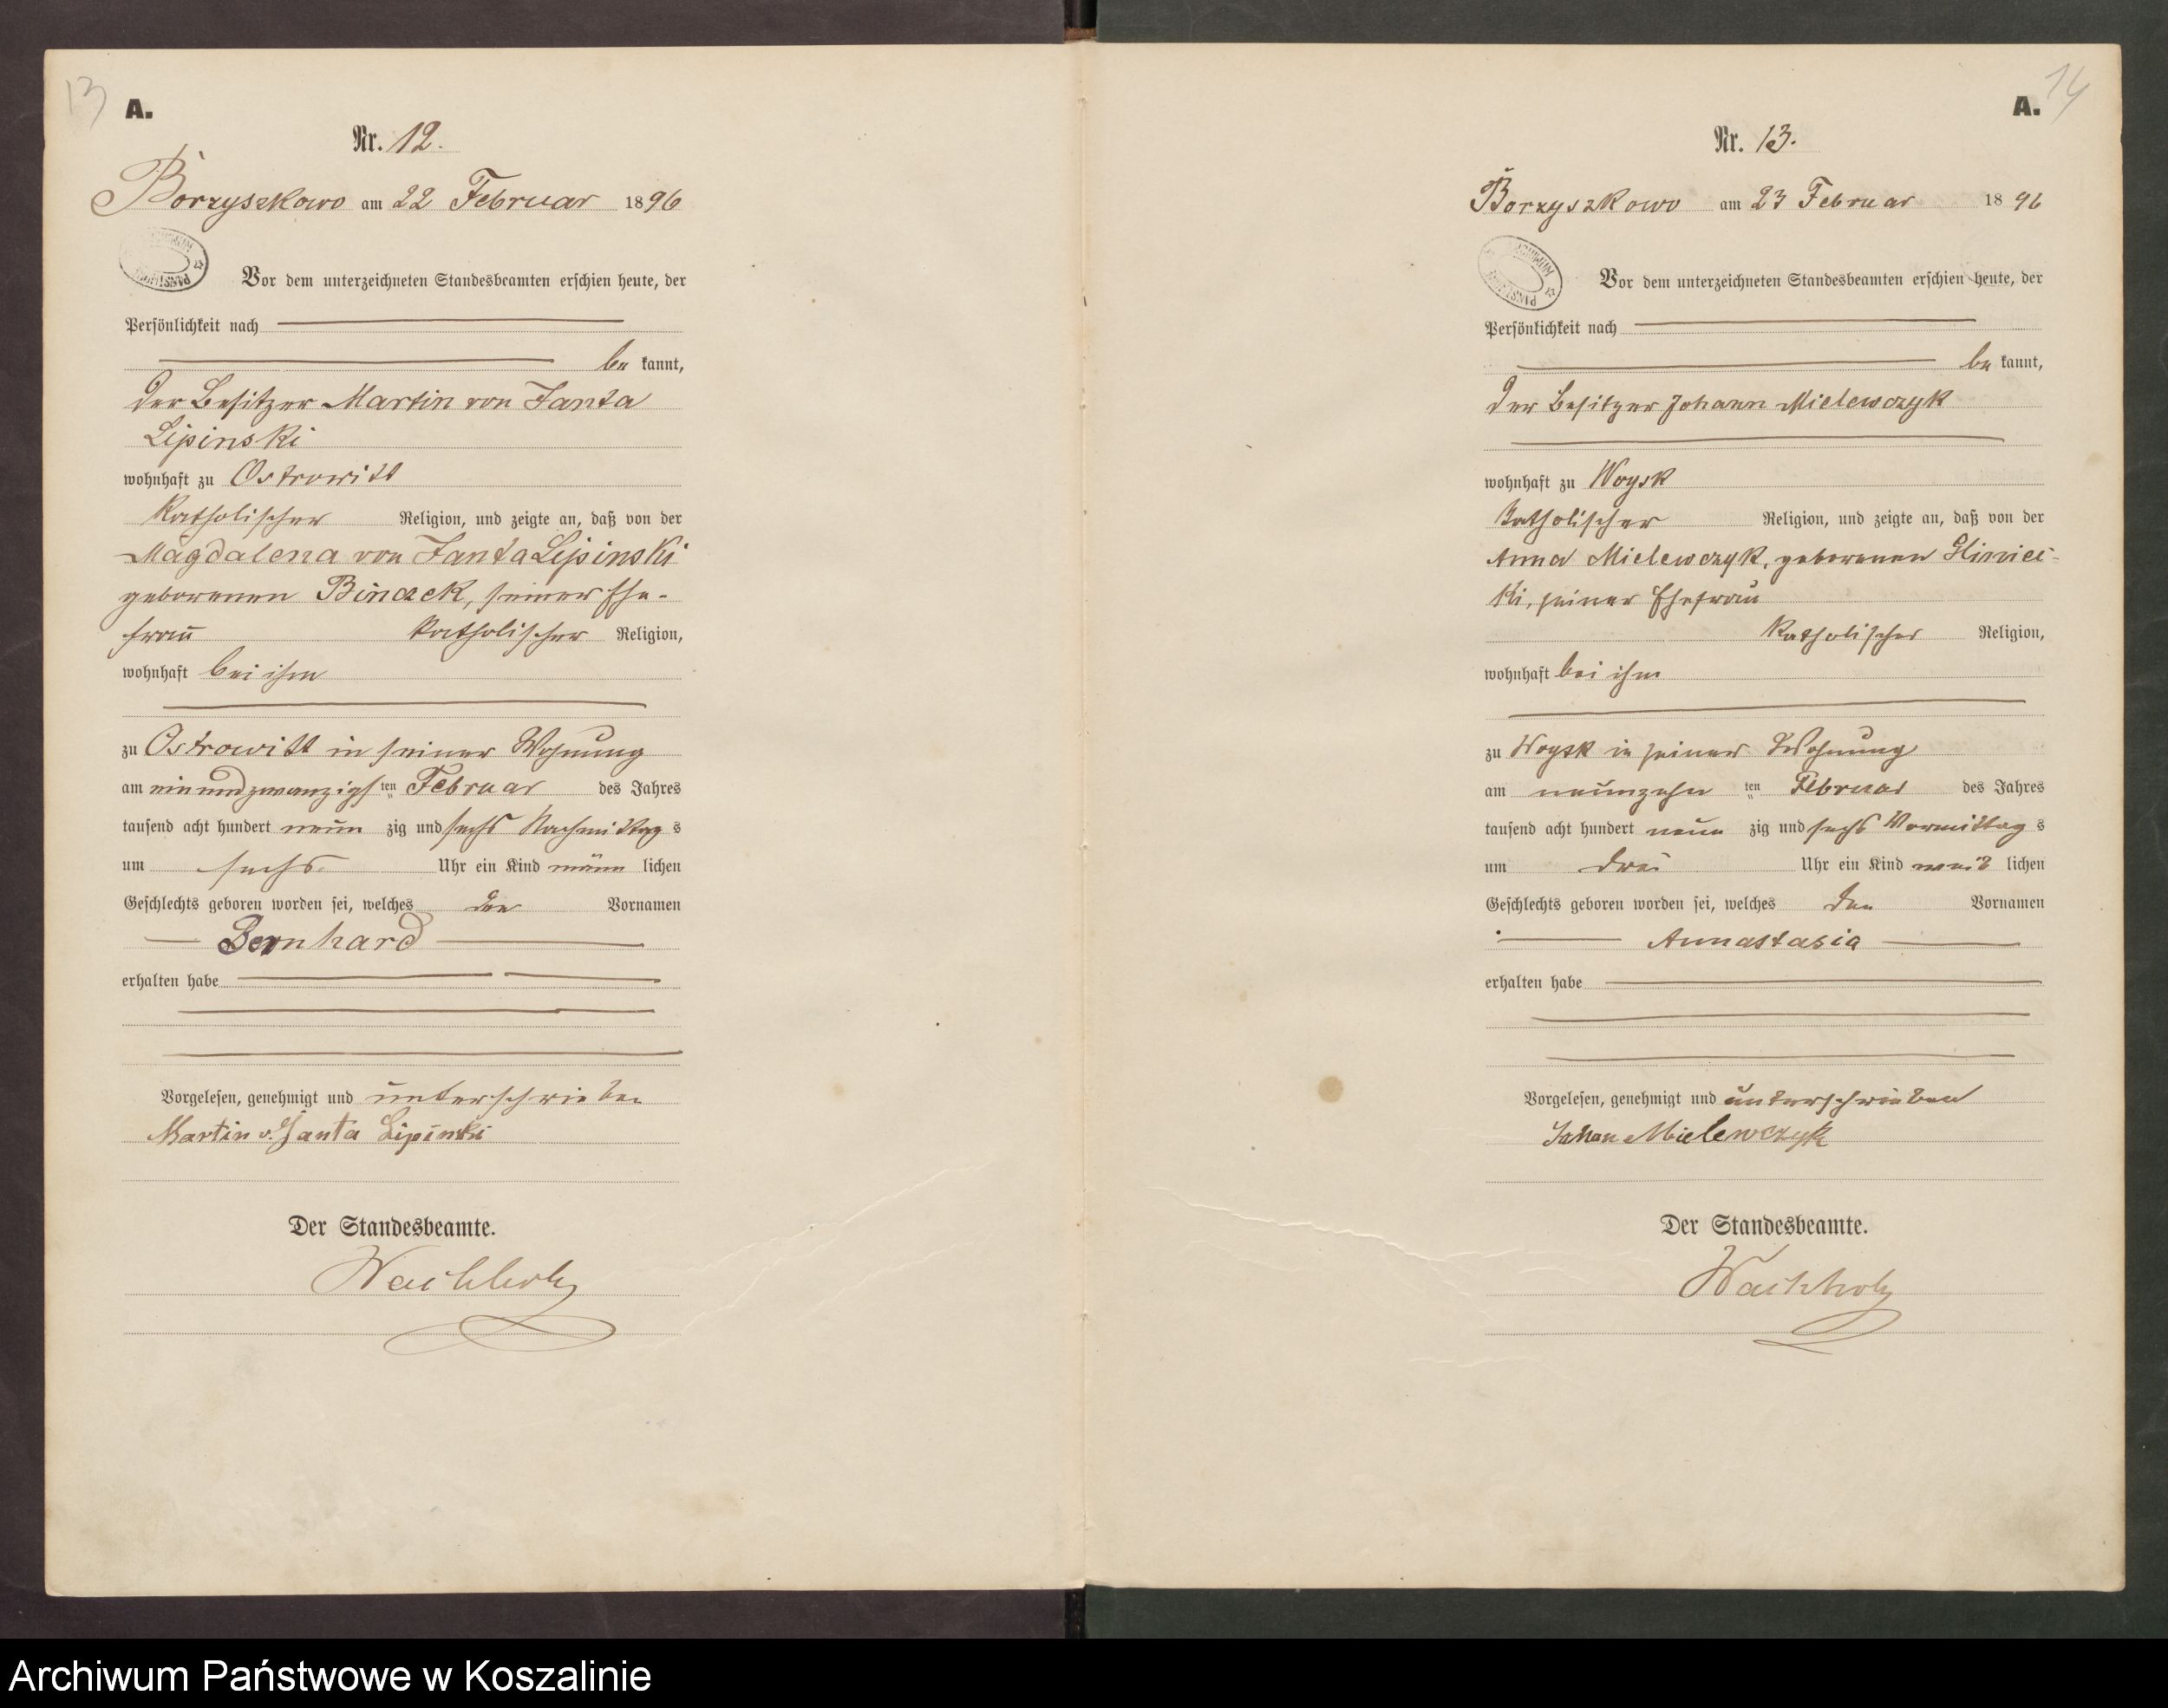 13
A.
Nr. 12.
Borzyszkowo am 22 Februar 1896
Vor dem unterzeichneten Standesbeamten erschien heute, der
Persönlichkeit nach
be kannt,
der Besitzer Martin von Janta
Lipinski
wohnhaft zu Ostrowitt
katholischer Religion, und zeigte an, daß von der
Magdalena von Janta Lipinski
geborenen Binczek, seiner Ehe-
frau katholischer Religion,
wohnhaft bei ihm
zu Ostrowitt in seiner Wohnung
am einundzwanzigsten Februar des Jahres
tausend acht hundert neun zig und sechs Nachmittag s
um sechs Uhr ein Kind männ lichen
Geschlechts geboren worden sei, welches den Vornamen
Bernhard
erhalten habe
Vorgelesen, genehmigt und unterschrieben
Martin v. Janta Lipinski
Der Standesbeamte.
Wachholz
14
A.
Nr. 13.
Borzyszkowo am 23 Februar 1896
Vor dem unterzeichneten Standesbeamten erschien heute, der
Persönlichkeit nach
be kannt,
der Besitzer Johann Mielewczyk
wohnhaft zu Woysk
katholischer Religion, und zeigte an, daß von der
Anna Mielewczyk, geborenen
ki, seiner Ehefrau
katholischer Religion,
wohnhaft bei ihm
zu Woysk in seiner Wohnung
am neunzehn ten Februar des Jahres
tausend acht hundert neun zig und sechs Vormittag s
um drei Uhr ein Kind weib lichen
Geschlechts geboren worden sei, welches den Vornamen
Annastasia
erhalten habe
Vorgelesen, genehmigt und unterschrieben
Johan Mielewczyk
Der Standesbeamte.
Wachholz
Archiwum Państwowe w Koszalinie